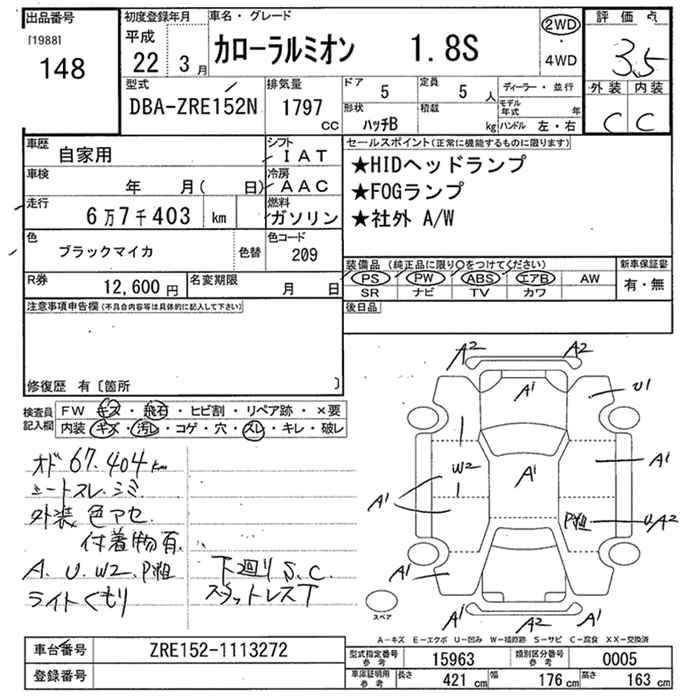 出品番号
[1988]
148
初度登録年月
平成
22 3 月
車名・グレード
カローラルミオン 1.8S
2WD
・
4WD
評価点
3.5
外装 内装
C C
型式
DBA-ZRE152N
排気量
1797
CC
ドア 5
定員 5 人
形状
ハッチB
積載
kg
ディーラー・並行
モデル年式 年
ハンドル 左・右
車歴
自家用
シフト
IAT
車検
年 月( 日)
冷房
AAC
走行
6万7千403 km
燃料
ガソリン
色
ブラックマイカ
色替
色コード
209
R券
12,600 円
名変期限
月 日
セールスポイント(正常に機能するものに限ります)
★HIDヘッドランプ
★FOGランプ
★社外 A/W
装備品(純正品に限り○をつけてください)
PS PW ABS エアB AW
SR ナビ TV カワ
新車保証書
有・無
後日品
注意事項申告欄(不具合内容等は具体的に記入して下さい)
修復歴 有〔箇所 〕
検査員
記入欄
FW キズ・飛石・ヒビ割・リペア跡・×要
内装・キズ・汚レ・コゲ・穴・スレ・キレ・破レ
オド 67.404km
シートスレ.シミ
外装 色アセ
付着物有.
A. U. W2. P粗
ライトくもり
下廻り S.C.
スタットレスT
A2 A2
A1 U1
W2 A1 A1
A1
P粗 UA2
A1 A1
スペア
A1 A2 A1
A-キズ E-エクボ U-凹み W-補修跡 S-サビ C-腐食 XX-交換済
車台番号
ZRE152-1113272
登録番号
型式指定番号
参考
15963
類別区分番号
参考
0005
車庫証明用
参考
長さ 421 cm 幅 176 cm 高さ 163 cm